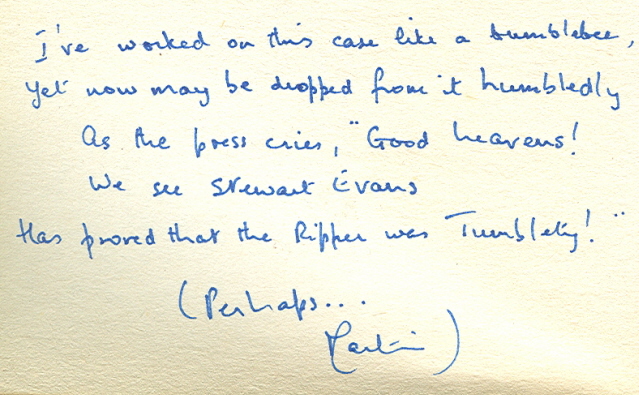 I've worked on this case like a bumblebee,
Yet now may be dropped from it humbledly
As the press cries, "Good heavens!
We see Stewart Evans
Has proved that the Ripper was Tumblety!"
(Perhaps...
Martin)